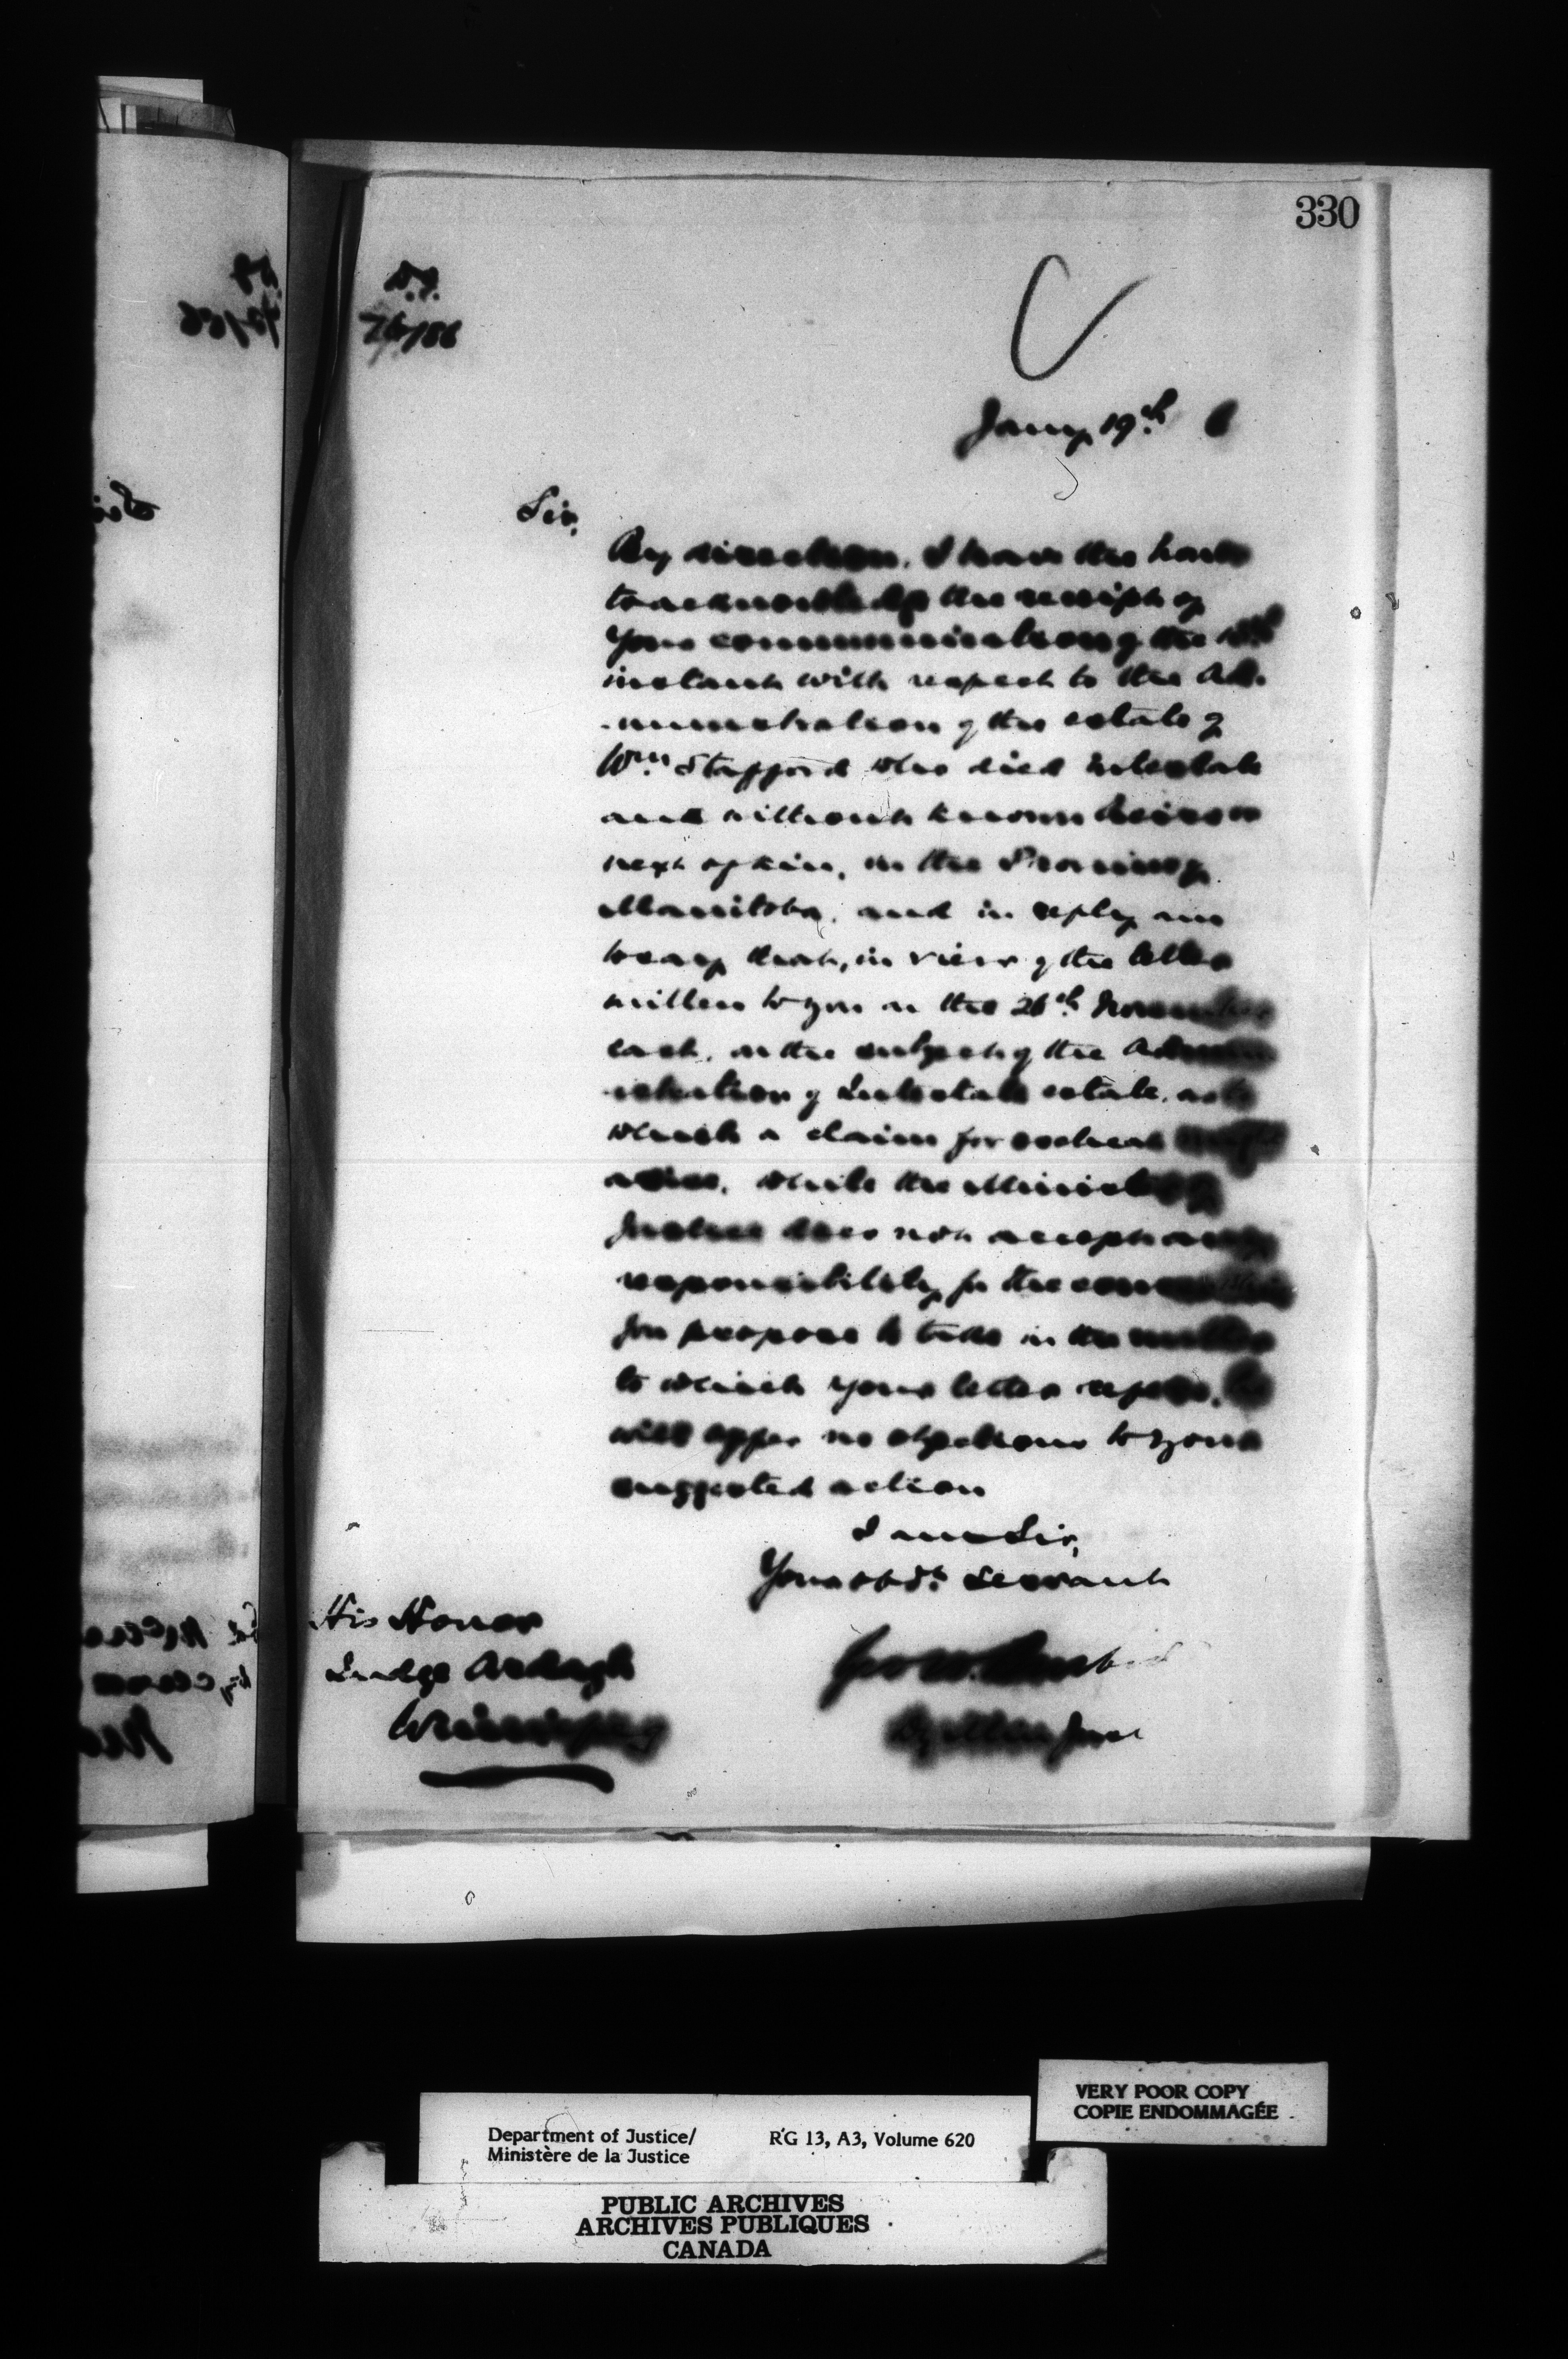 330
D.J.
76/86
Jany 19th 6
Sir,
By direction, I have the honor
to acknowledge the receipt of
your communication of the
instant with respect to the Ad-
-ministration of the estate of
Wm Stafford who died intestate
and without known heirs or
next of kin, in the Province of
Manitoba, and in reply am
to say that, in view of the letter
written to you on the 26th November
last, on the subject of the Admin-
-istration of Intestate estate, as to
which a claim for escheat might
arise, while the Minister of
Justice does not accept any
responsibility for the
you propose to take in the matter
to which your letter refers, he
will offer no objections to your
suggested action
I am Sir,
Your obdt. Servant
His Honor
Judge Ardagh
Winnipeg
Geo W. Burbidge
Dy Min Just
Department of Justice/
Ministère de la Justice
RG 13, A3, Volume 620
VERY POOR COPY
COPIE ENDOMMAGÉE
PUBLIC ARCHIVES
ARCHIVES PUBLIQUES
CANADA